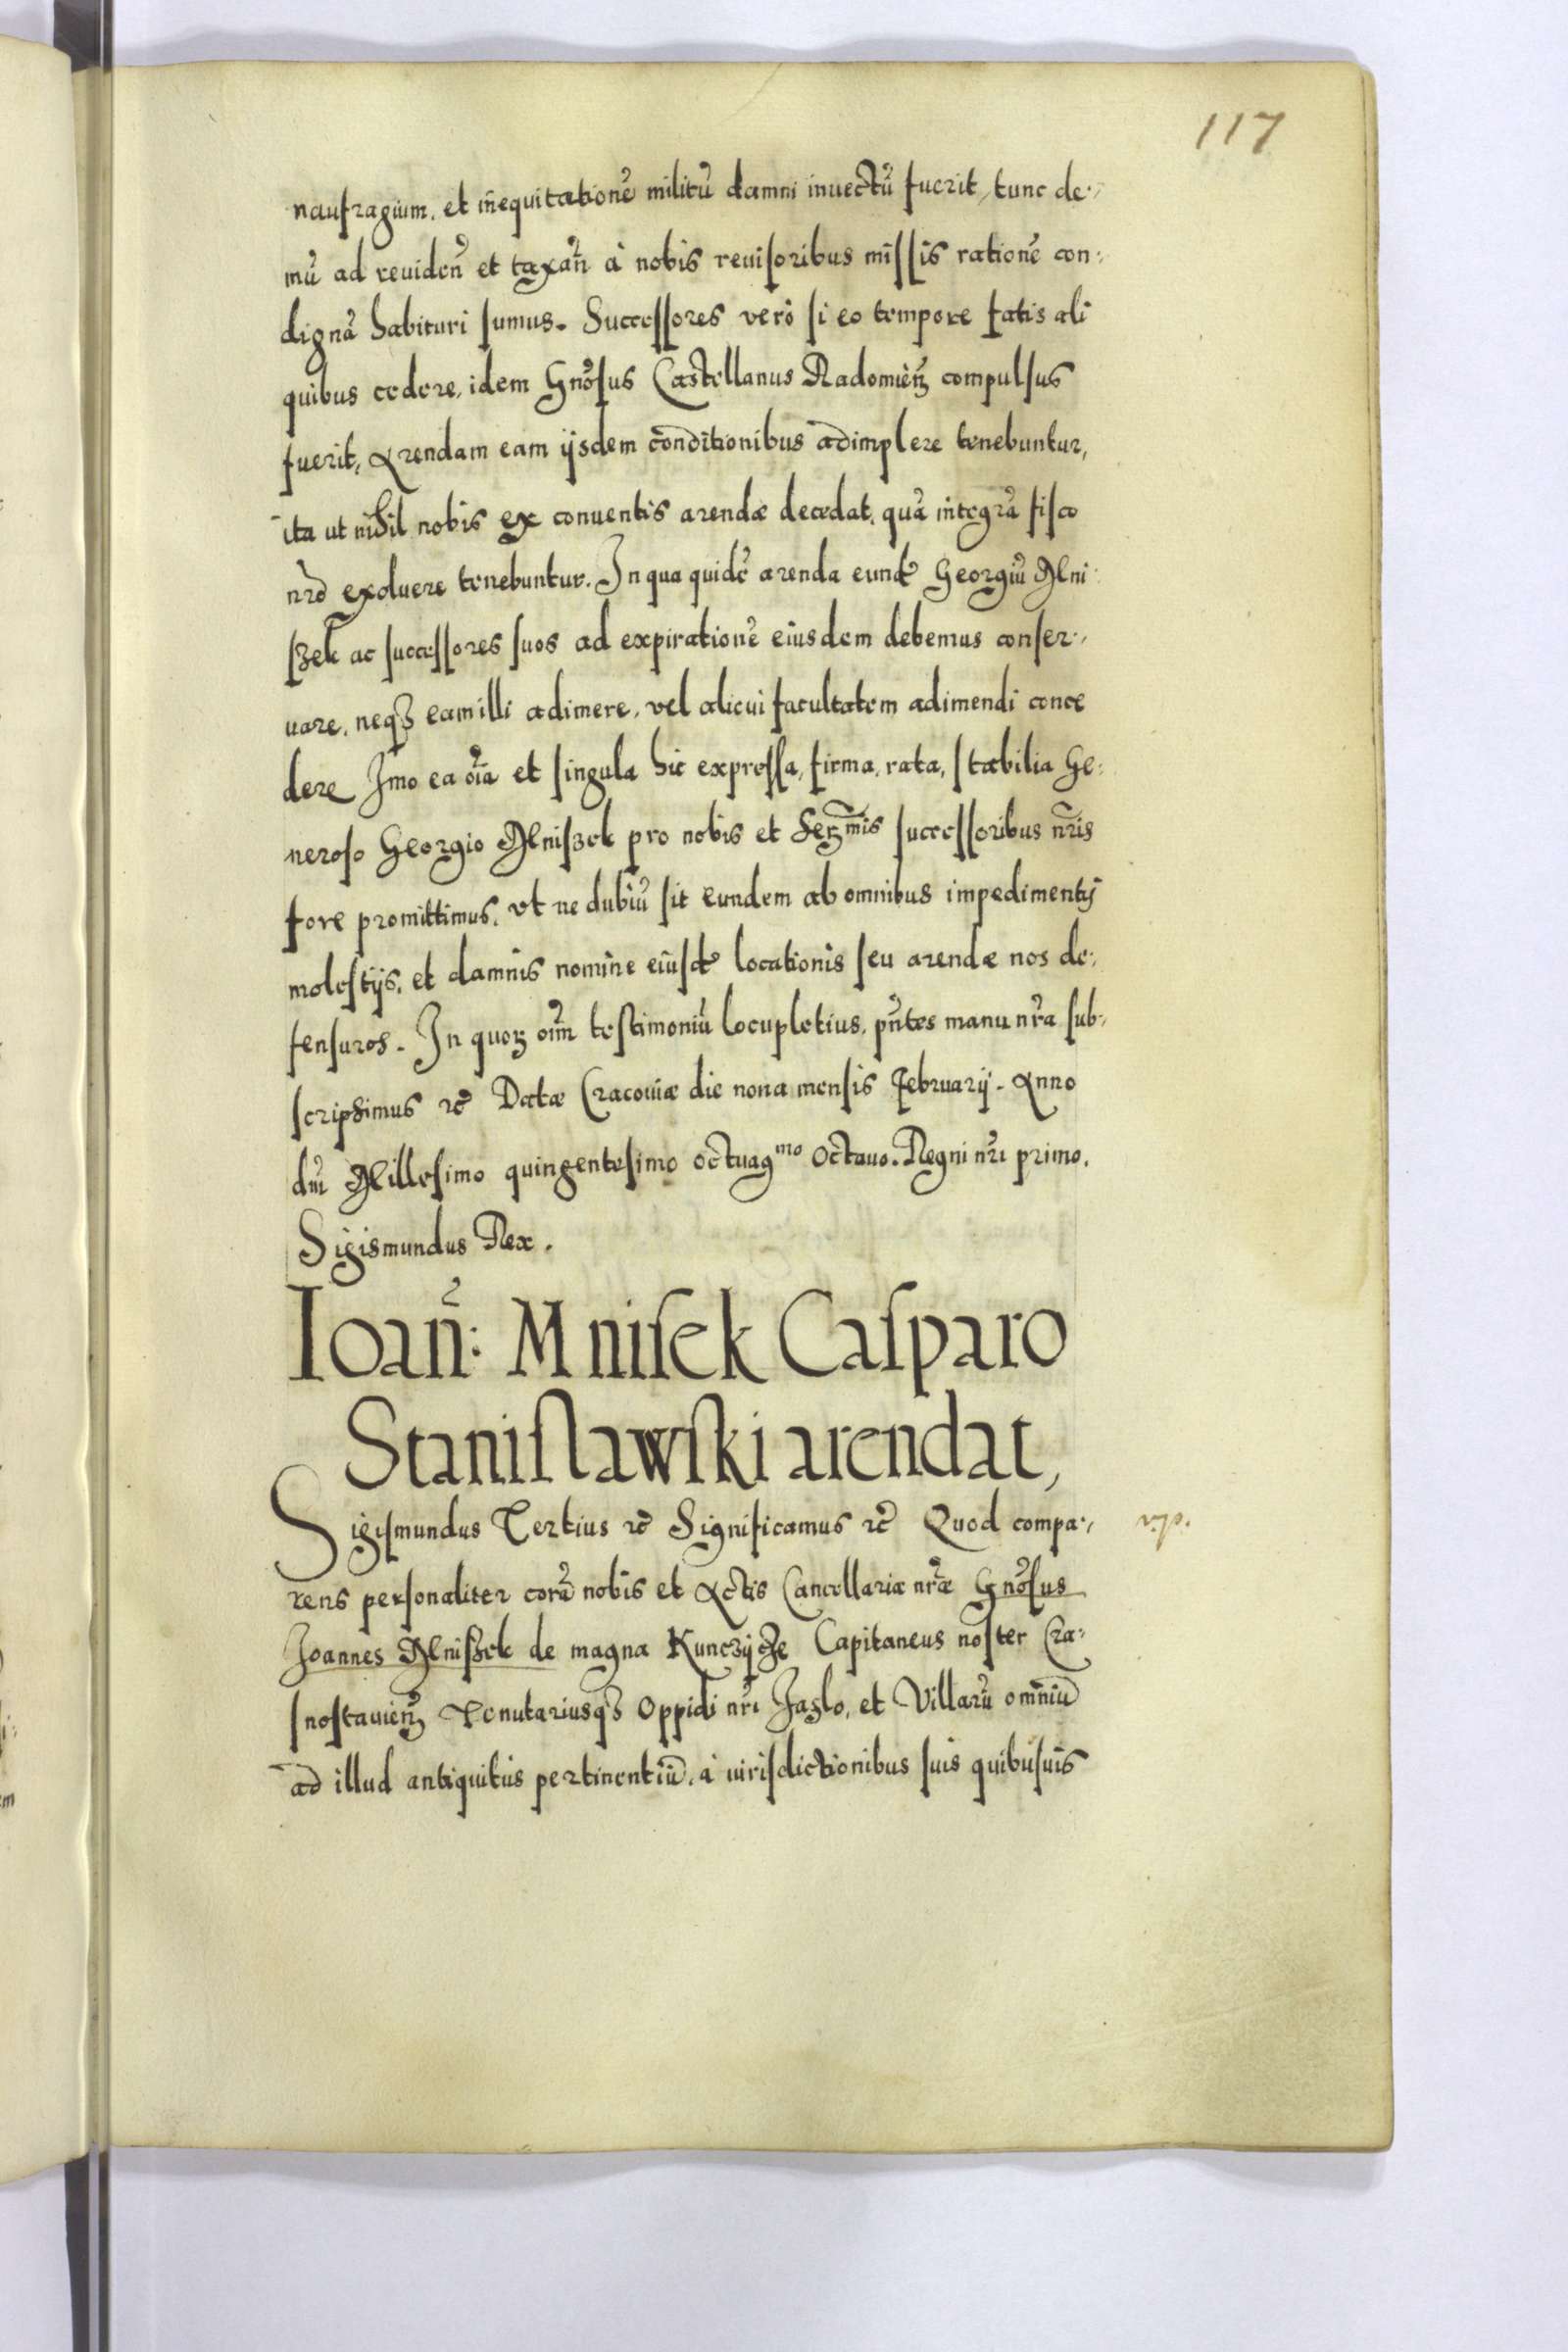 117
naufragium, et inequitationē militū damni inuectū fuerit, tunc de-
mū ad reuidēn et taxān à nobis reuisoribus missis rationē con-
dignā habituri sumus. Successores verò si eo tempore fatis ali
quibus cedere, idem Gnōsus Castellanus Radomien̄ compulsus
fuerit, Arendam eam ijsdem conditionibus adimplere tenebuntur,
ita ut nihil nobis ex conuentis arendæ decedat, quā integrā fisco
nrō exoluere tenebuntur. In qua quidē arenda eund̄ Georgiū Mni-
szek ac successores suos ad expirationē eiusdem debemus conser-
uare, neqȝ eam illi adimere, vel alicui facultatem adimendi conce
dere Imo ea oīa et singula hic expressa, firma, rata, stabilia Ge-
neroso Georgio Mniszek pro nobis et Serm̄is successoribus nr̄is
fore promittimus, vt ne dubiū sit eundem ab omnibus impedimentis
molestijs, et damnis nomine eiusd̄ locationis seu arendæ nos de-
fensuros. In quoȝ oīm testimoniū locupletius, pn̄tes manu nr̄a sub-
scripsimus ꝛc̄ Datæ Cracouiæ die nona mensis February. Anno
dn̄i Millesimo quingentesimo octuagmo Octauo. Regni nr̄i primo.
Sigismundus Rex.
Ioan̄: Mnisek Casparo
Stanislawski arendat,
Sigismundus Tertius ꝛc̄ Significamus ꝛc̄ Quod compa-
rens personaliter corā nobis et Actis Cancellariæ nr̄æ Gnōsus
Joannes Mniszek de magna Kunczycze Capitaneus noster Cra-
snostauien̄ Tenutariusqȝ Oppidi nr̄i Jazlo, et Villarū omniū
ad illud antiquitùs pertinentiū, à iurisdictionibus suis quibusuis